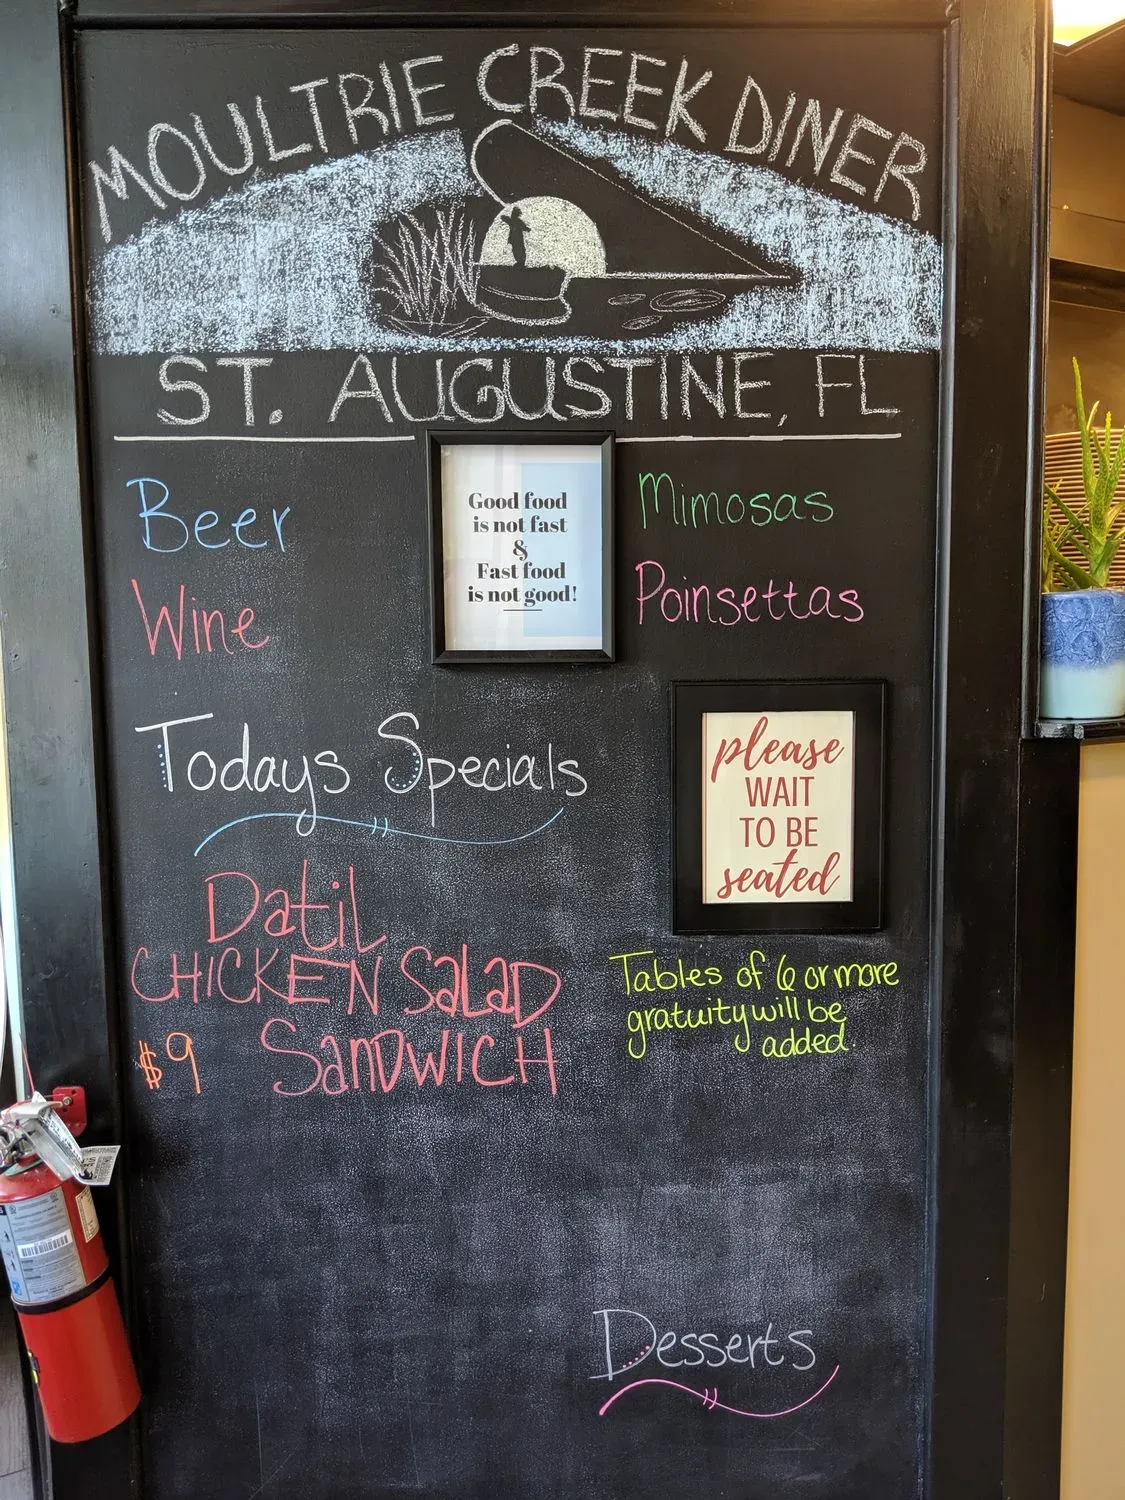 MOULTRIE CREEK DINER
ST. AUGUSTINE, FL
Beer
Wine
Good food
is not fast
&
Fast food
is not good!
Mimosas
Poinsettas
Todays Specials
please
WAIT
TO BE
seated
Datil
CHICKEN SALAD
$9 SANDWICH
Tables of 6 or more
gratuity will be
added.
Desserts